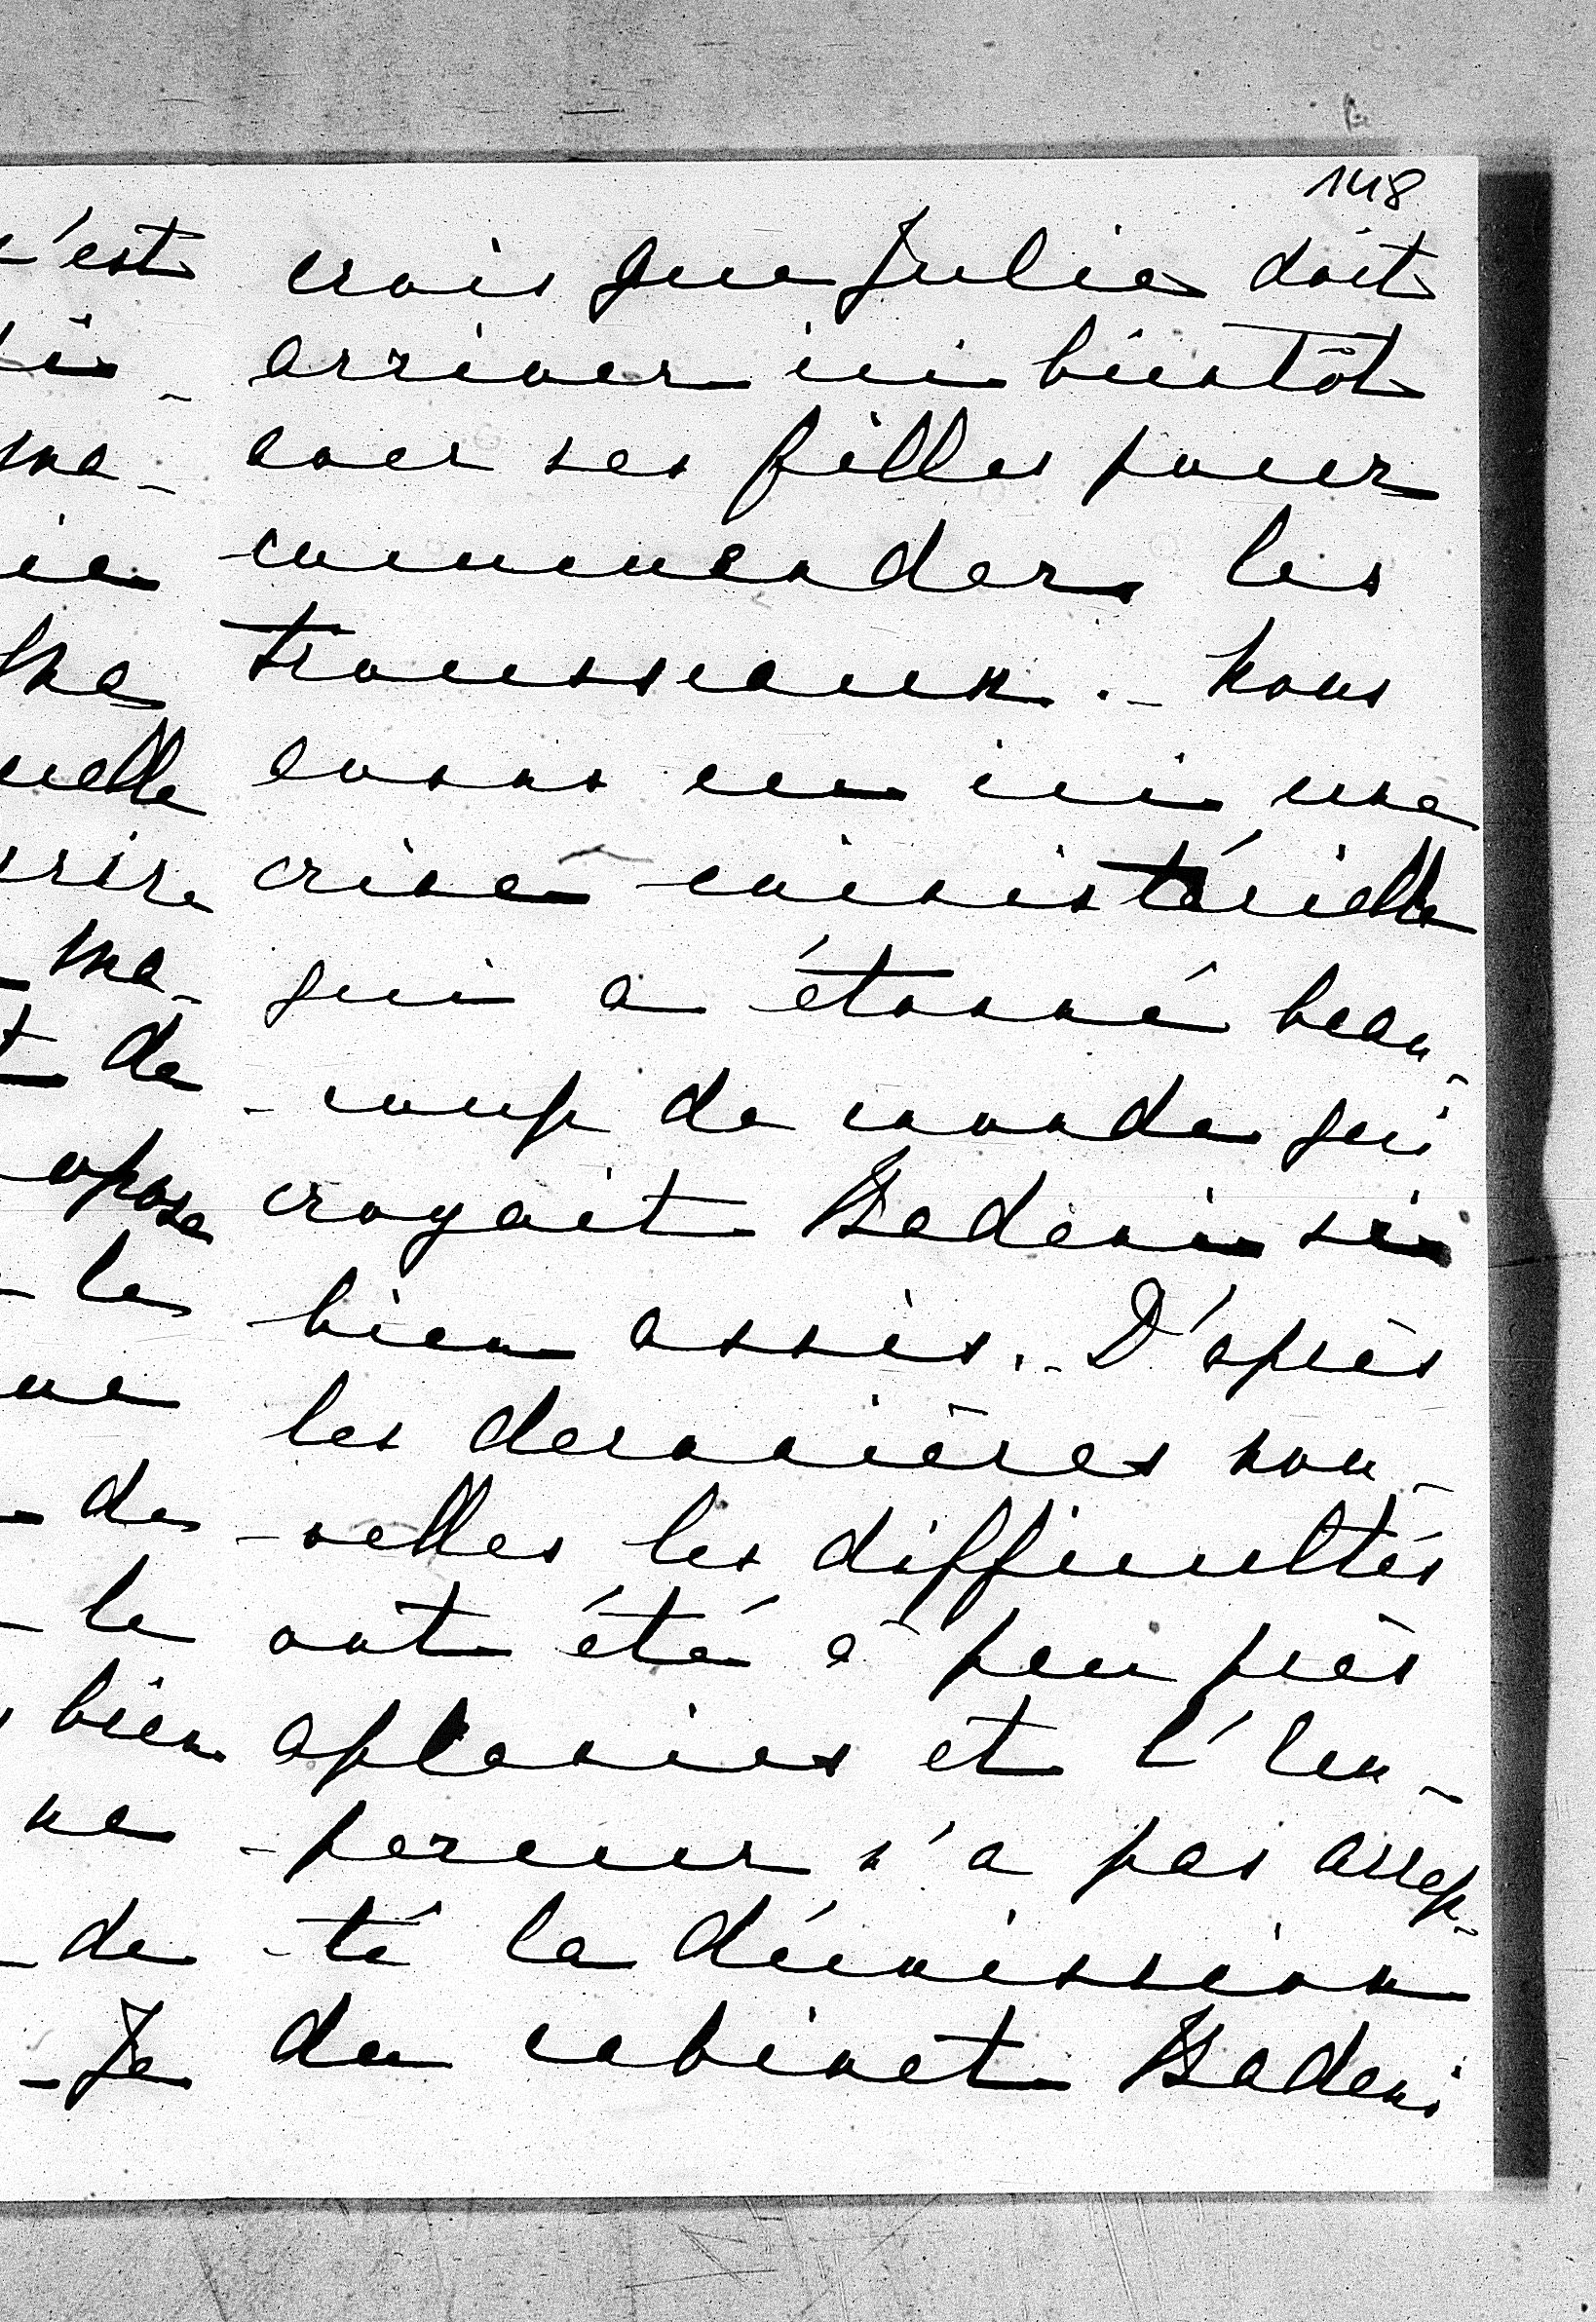 148
crois que Julie doit
arriver ici bientôt
avec ses filles pour
commander les
trousseaux. - Nous
avons eu ici une
crise ministérielle
qui a étonné beau-
-coup de monde qui
croyait Badeni si
bien assis. - D'après
les dernières nou-
-velles les difficultés
ont été à peu près
aplanies et l'Em-
-pereur n'a pas accep-
-té la démission
du cabinet Badeni
c'est
ma-
elle
ma-
t de
opose
- le
- de
- le
bien
ne
- de
- Je